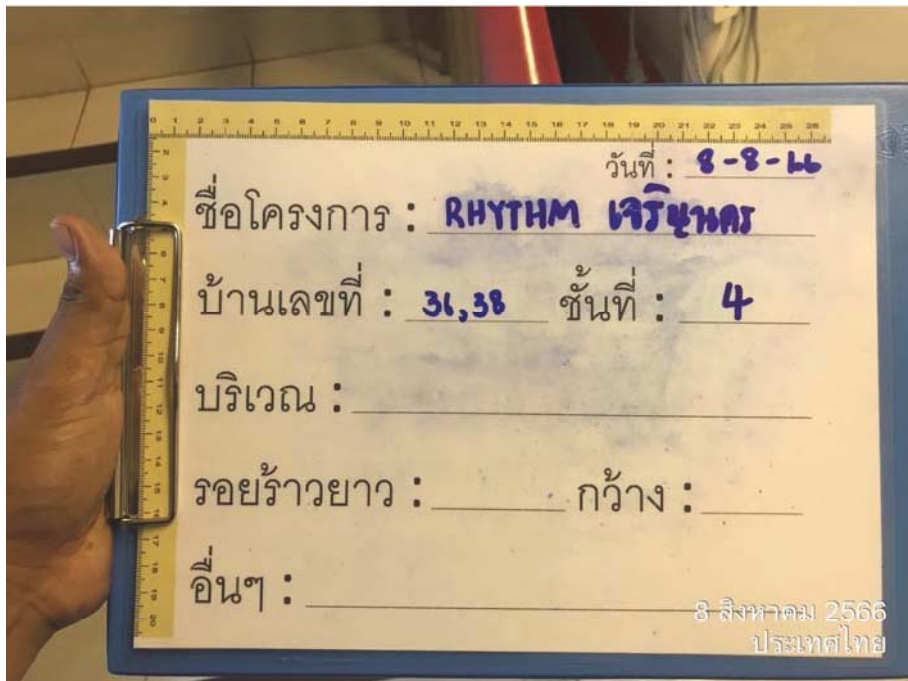 0 1 2 3 4 5 6 7 8 9 10 11 12 13 14 15 16 17 18 19 20 21 22 23 24 25 26
วันที่ : 8-8-66
ชื่อโครงการ : RHYTHM เจริญนคร
บ้านเลขที่ : 36,38 ชั้นที่ : 4
บริเวณ :
รอยร้าวยาว : กว้าง :
อื่นๆ :
8 สิงหาคม 2566
ประเทศไทย